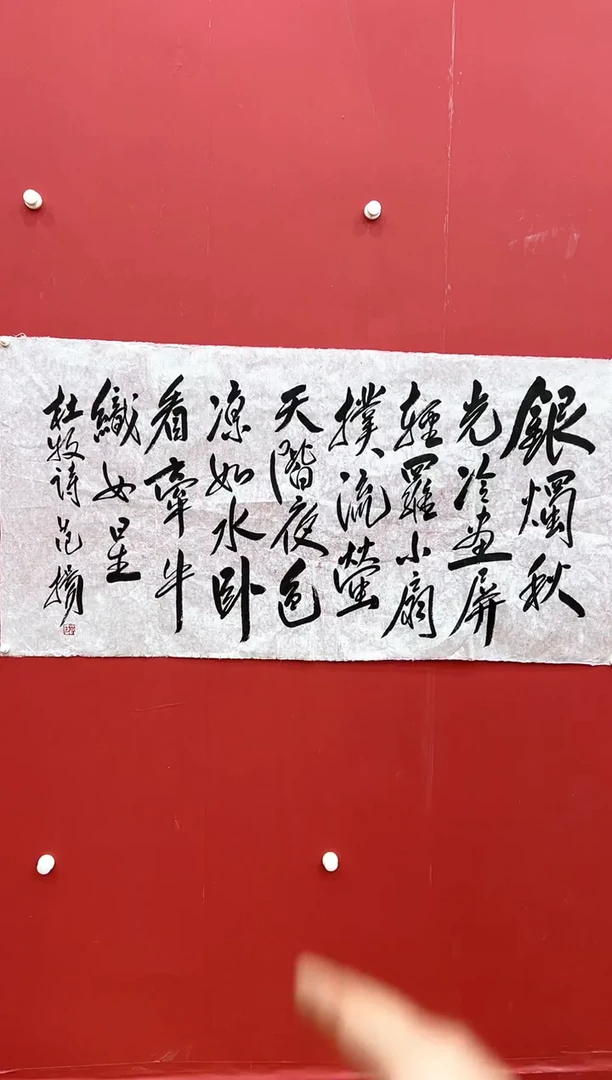 銀燭秋
光冷畫屏
輕羅小扇
撲流螢
天階夜色
涼如水卧
看牽牛
織女星
杜牧詩 范揚